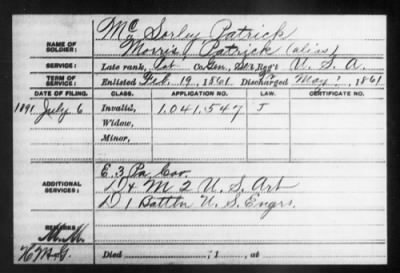 Mc Sorley Patrick
NAME OF SOLDIER: Morris, Patrick (alias)
SERVICE: Late rank, Pvt Co. Gen. Ser, Reg't U. S. A.
TERM OF SERVICE: Enlisted Feb. 19, 1861 Discharged May 1, 1861
DATE OF FILING. CLASS. APPLICATION NO. LAW. CERTIFICATE NO.
1891 July 6 Invalid, 1.041.547 J
Widow,
Minor,
ADDITIONAL SERVICES: E. 3 Pa. Cav.
D & M 2 U. S. Art
D 1 Battln U. S. Engrs.
REMARKS:
Died , 1 , at